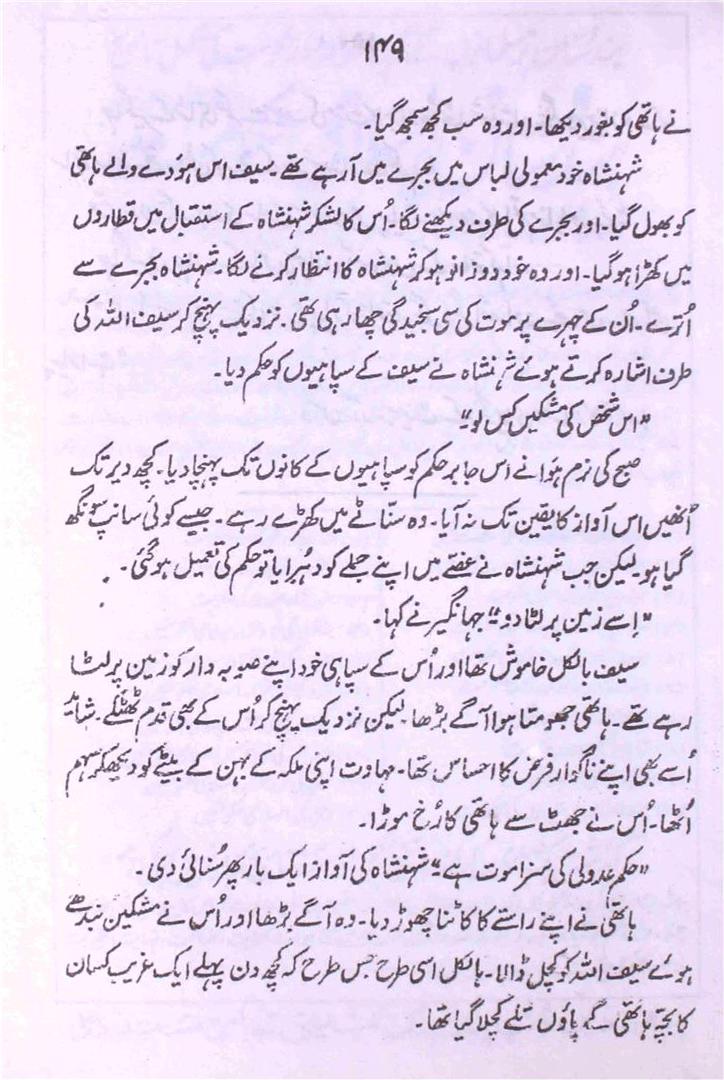 ۱۴۹
نے ہاتھی کو بغور دیکھا۔ اور وہ سب کچھ سمجھ گیا۔
شہنشاہ خود معمولی لباس میں بجرے میں آرہے تھے۔ سیف اس ہودے والے ہاتھی
کو بھول گیا۔ اور بجرے کی طرف دیکھنے لگا۔ اُس کا لشکر شہنشاہ کے استقبال میں قطاروں
میں کھڑا ہو گیا۔ اور وہ خود دوزانو ہو کر شہنشاہ کا انتظار کرنے لگا۔ شہنشاہ بجرے سے
اُترے۔ اُن کے چہرے پر موت کی سی سنجیدگی چھا رہی تھی۔ نزدیک پہنچ کر سیف اللہ کی
طرف اشارہ کرتے ہوئے شہنشاہ نے سیف کے سپاہیوں کو حکم دیا۔
”اس شخص کی مشکیں کس لو“
صبح کی نرم ہوا نے اس جابر حکم کو سپاہیوں کے کانوں تک پہنچا دیا۔ کچھ دیر تک
اُنھیں اس آواز کا یقین تک نہ آیا۔ وہ سناٹے میں کھڑے رہے۔ جیسے کوئی سانپ سونگھ
گیا ہو۔ لیکن جب شہنشاہ نے غصّے میں اپنے جملے کو دُہرایا تو حکم کی تعمیل ہو گئی۔
”اِسے زمین پر لٹا دو“ جہانگیر نے کہا۔
سیف بالکل خاموش تھا اور اُس کے سپاہی خود اپنے صوبہ دار کو زمین پر لٹا
رہے تھے۔ ہاتھی جھومتا ہوا آگے بڑھا۔ لیکن نزدیک پہنچ کر اُس کے بھی قدم ٹھٹکے۔ شاید
اُسے بھی اپنے ناگوار فرض کا احساس تھا۔ مہاوت اپنی ملکہ کے بہن کے بیٹے کو دیکھ کر سہم
اُٹھا۔ اُس نے جھٹ سے ہاتھی کا رُخ موڑا۔
”حکم عدولی کی سزا موت ہے“ شہنشاہ کی آواز ایک بار پھر سُنائی دی۔
ہاتھی نے اپنے راستے کا کاٹنا چھوڑ دیا۔ وہ آگے بڑھا اور اُس نے مشکیں بندھے
ہوئے سیف اللہ کو کچل ڈالا۔ بالکل اسی طرح جس طرح کہ کچھ دن پہلے ایک غریب کسان
کا بچّہ ہاتھی کے پاؤں تلے کچلا گیا تھا۔